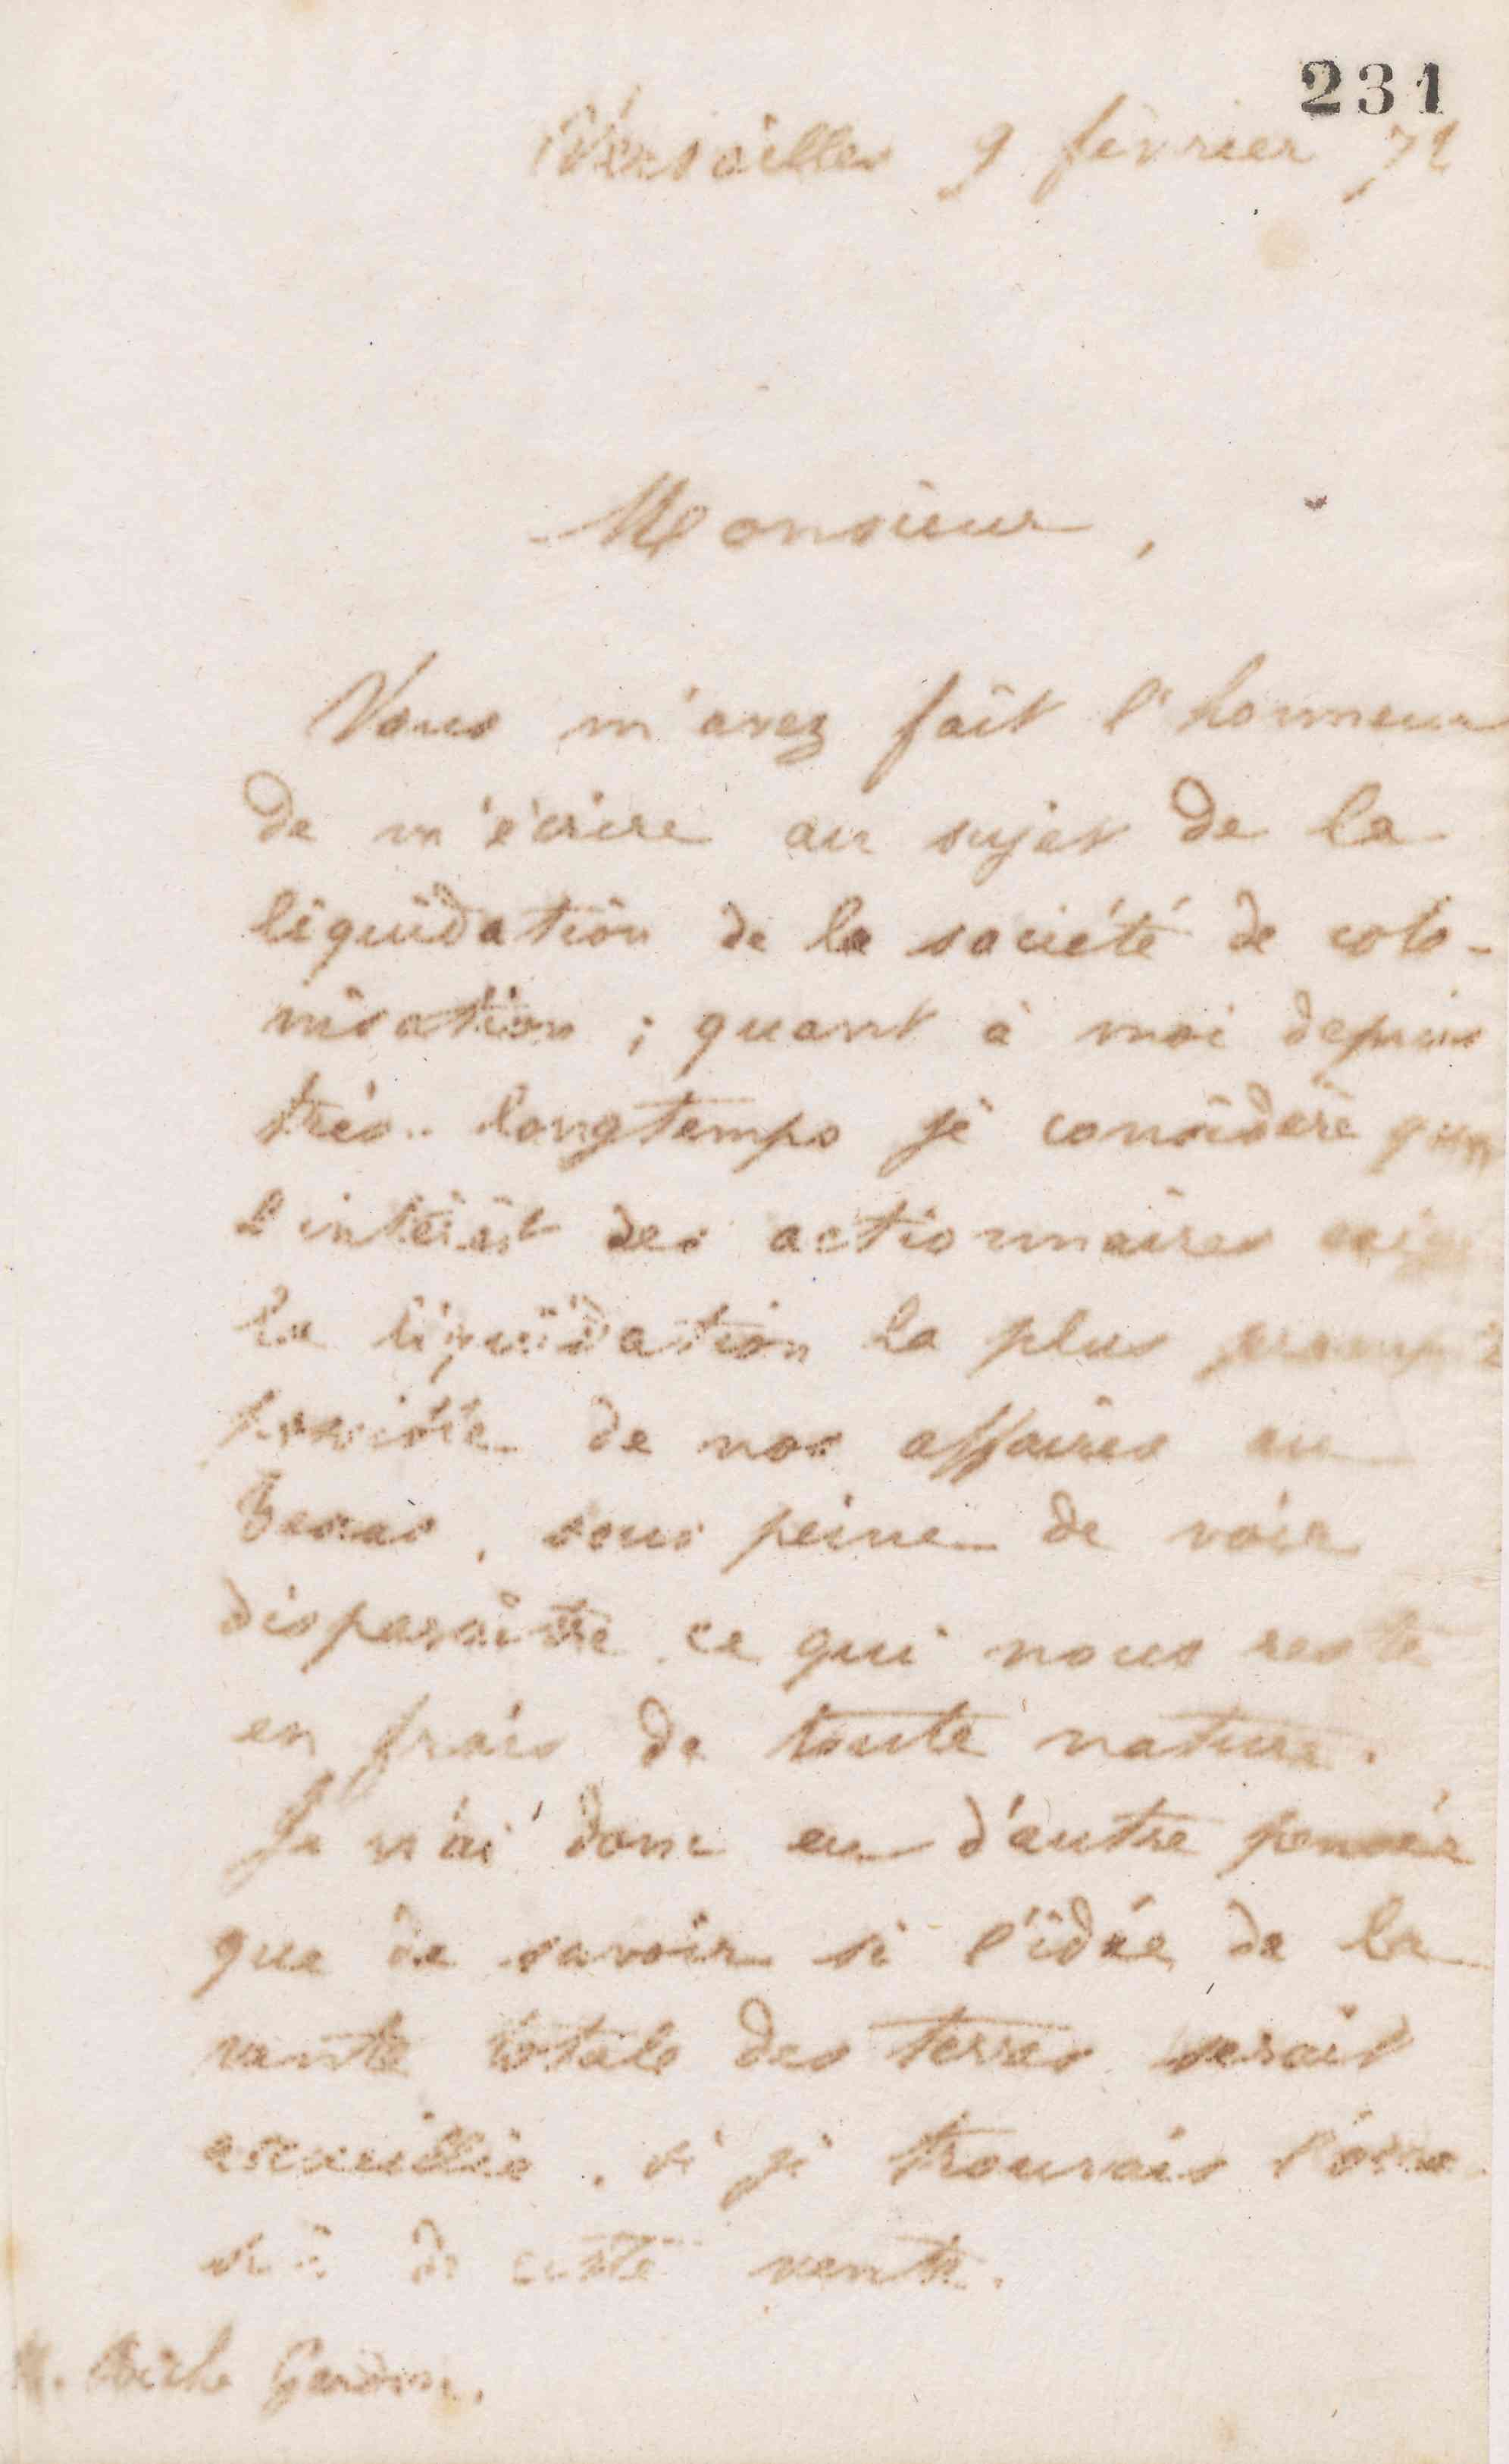 231
Versailles 9 février 72
Monsieur,
Vous m'avez fait l'honneur
de m'écrire au sujet de la
liquidation de la société de colo-
nisation ; quant à moi depuis
très-longtemps je considère que
l'intérêt des actionnaires exige
la liquidation la plus prompte
possible de nos affaires au
Texas, sous peine de voir
disparaître ce qui nous reste
en frais de toute nature.
Je n'ai donc eu d'autre pensée
que de savoir si l'idée de la
vente totale des terres serait
accueillie, si je trouvais l'occa-
sion de cette vente.
M. Gardon.